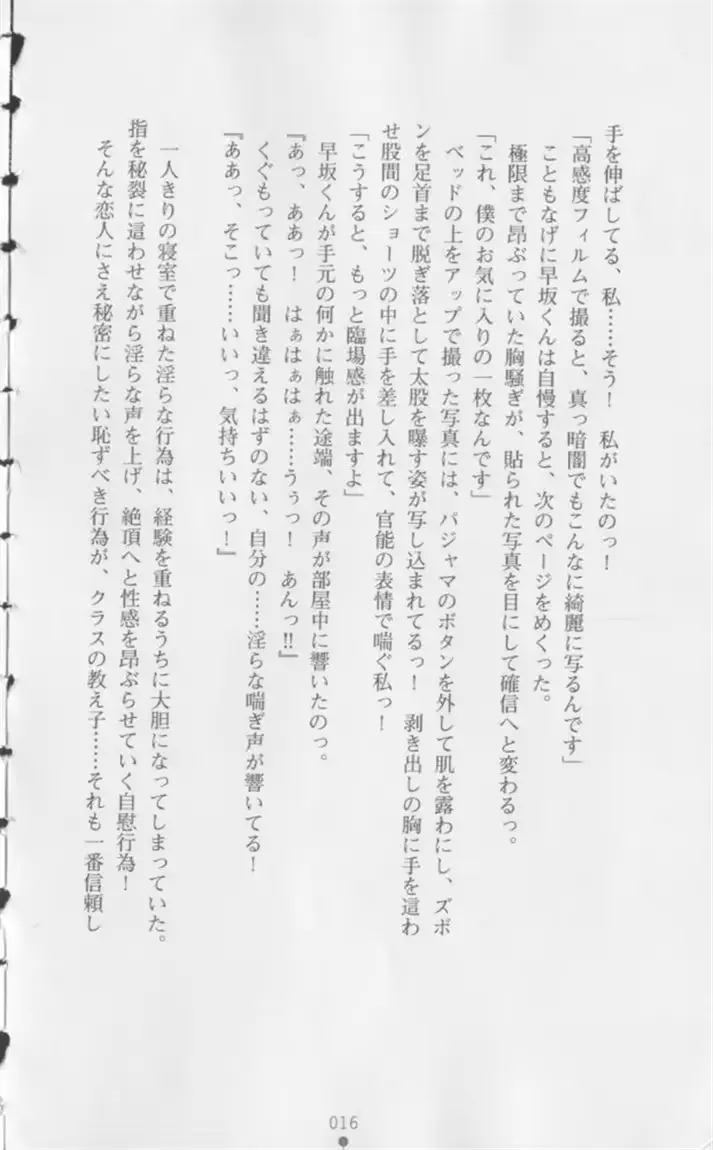 手を伸ばしてる、私……そう！　私がいたのっ！
「高感度フィルムで撮ると、真っ暗闇でもこんなに綺麗に写るんです」
こともなげに早坂くんは自慢すると、次のページをめくった。
極限まで昂ぶっていた胸騒ぎが、貼られた写真を目にして確信へと変わるっ。
「これ、僕のお気に入りの一枚なんです」
ベッドの上をアップで撮った写真には、パジャマのボタンを外して肌を露わにし、ズボ
ンを足首まで脱ぎ落として太股を曝す姿が写し込まれてるっ！　剥き出しの胸に手を這わ
せ股間のショーツの中に手を差し入れて、官能の表情で喘ぐ私っ！
「こうすると、もっと臨場感が出ますよ」
早坂くんが手元の何かに触れた途端、その声が部屋中に響いたのっ。
『あっ、ああっ！　はぁはぁはぁ……うぅっ！　あんっ‼』
くぐもっていても聞き違えるはずのない、自分の……淫らな喘ぎ声が響いてる！
『ああっ、そこっ……いいっ、気持ちいいっ！』
一人きりの寝室で重ねた淫らな行為は、経験を重ねるうちに大胆になってしまっていた。
指を秘裂に這わせながら淫らな声を上げ、絶頂へと性感を昂ぶらせていく自慰行為！
そんな恋人にさえ秘密にしたい恥ずべき行為が、クラスの教え子……それも一番信頼し
016